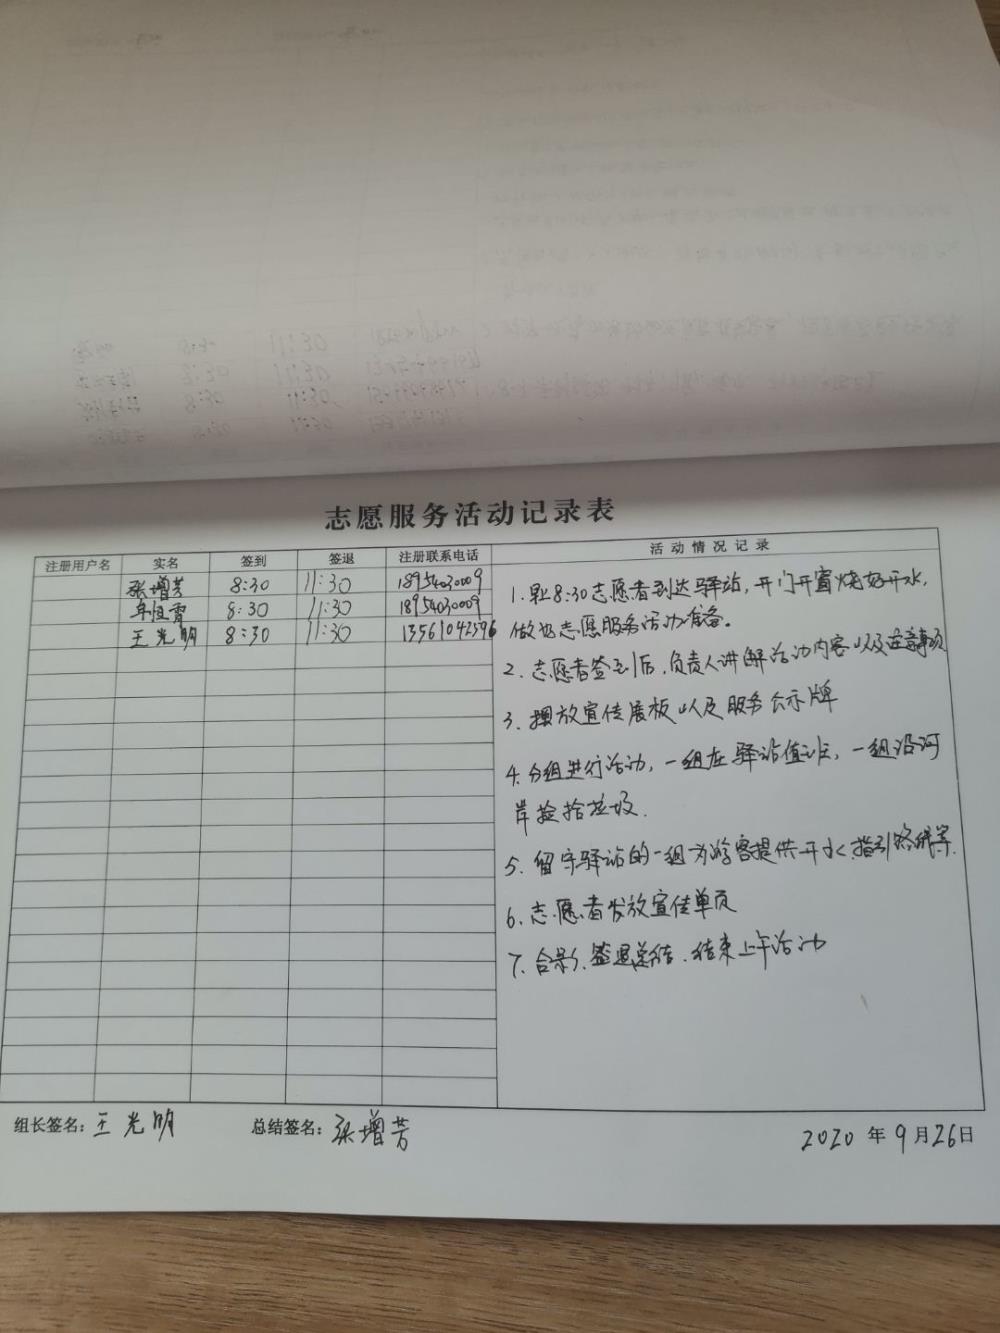 志愿服务活动记录表
注册用户名 实名 签到 签退 注册联系电话 活动情况记录
张增芳 8:30 11:30 18954030009
8:30 11:30 18954030009
王光明 8:30 11:30 13561042596
1.早上8:30志愿者到达驿站,开门开窗烧好开水,
做好志愿服务活动准备。
2.志愿者签到后,负责人讲解活动内容以及注意事项
3.摆放宣传展板以及服务公示牌
4.分组进行活动,一组在驿站值班,一组沿河
岸捡拾垃圾.
5.留守驿站的一组为游客提供开水、指引路线等.
6.志愿者发放宣传单页
7.合影、签退总结、结束上午活动
组长签名:王光明 总结签名:张增芳 2020年9月26日